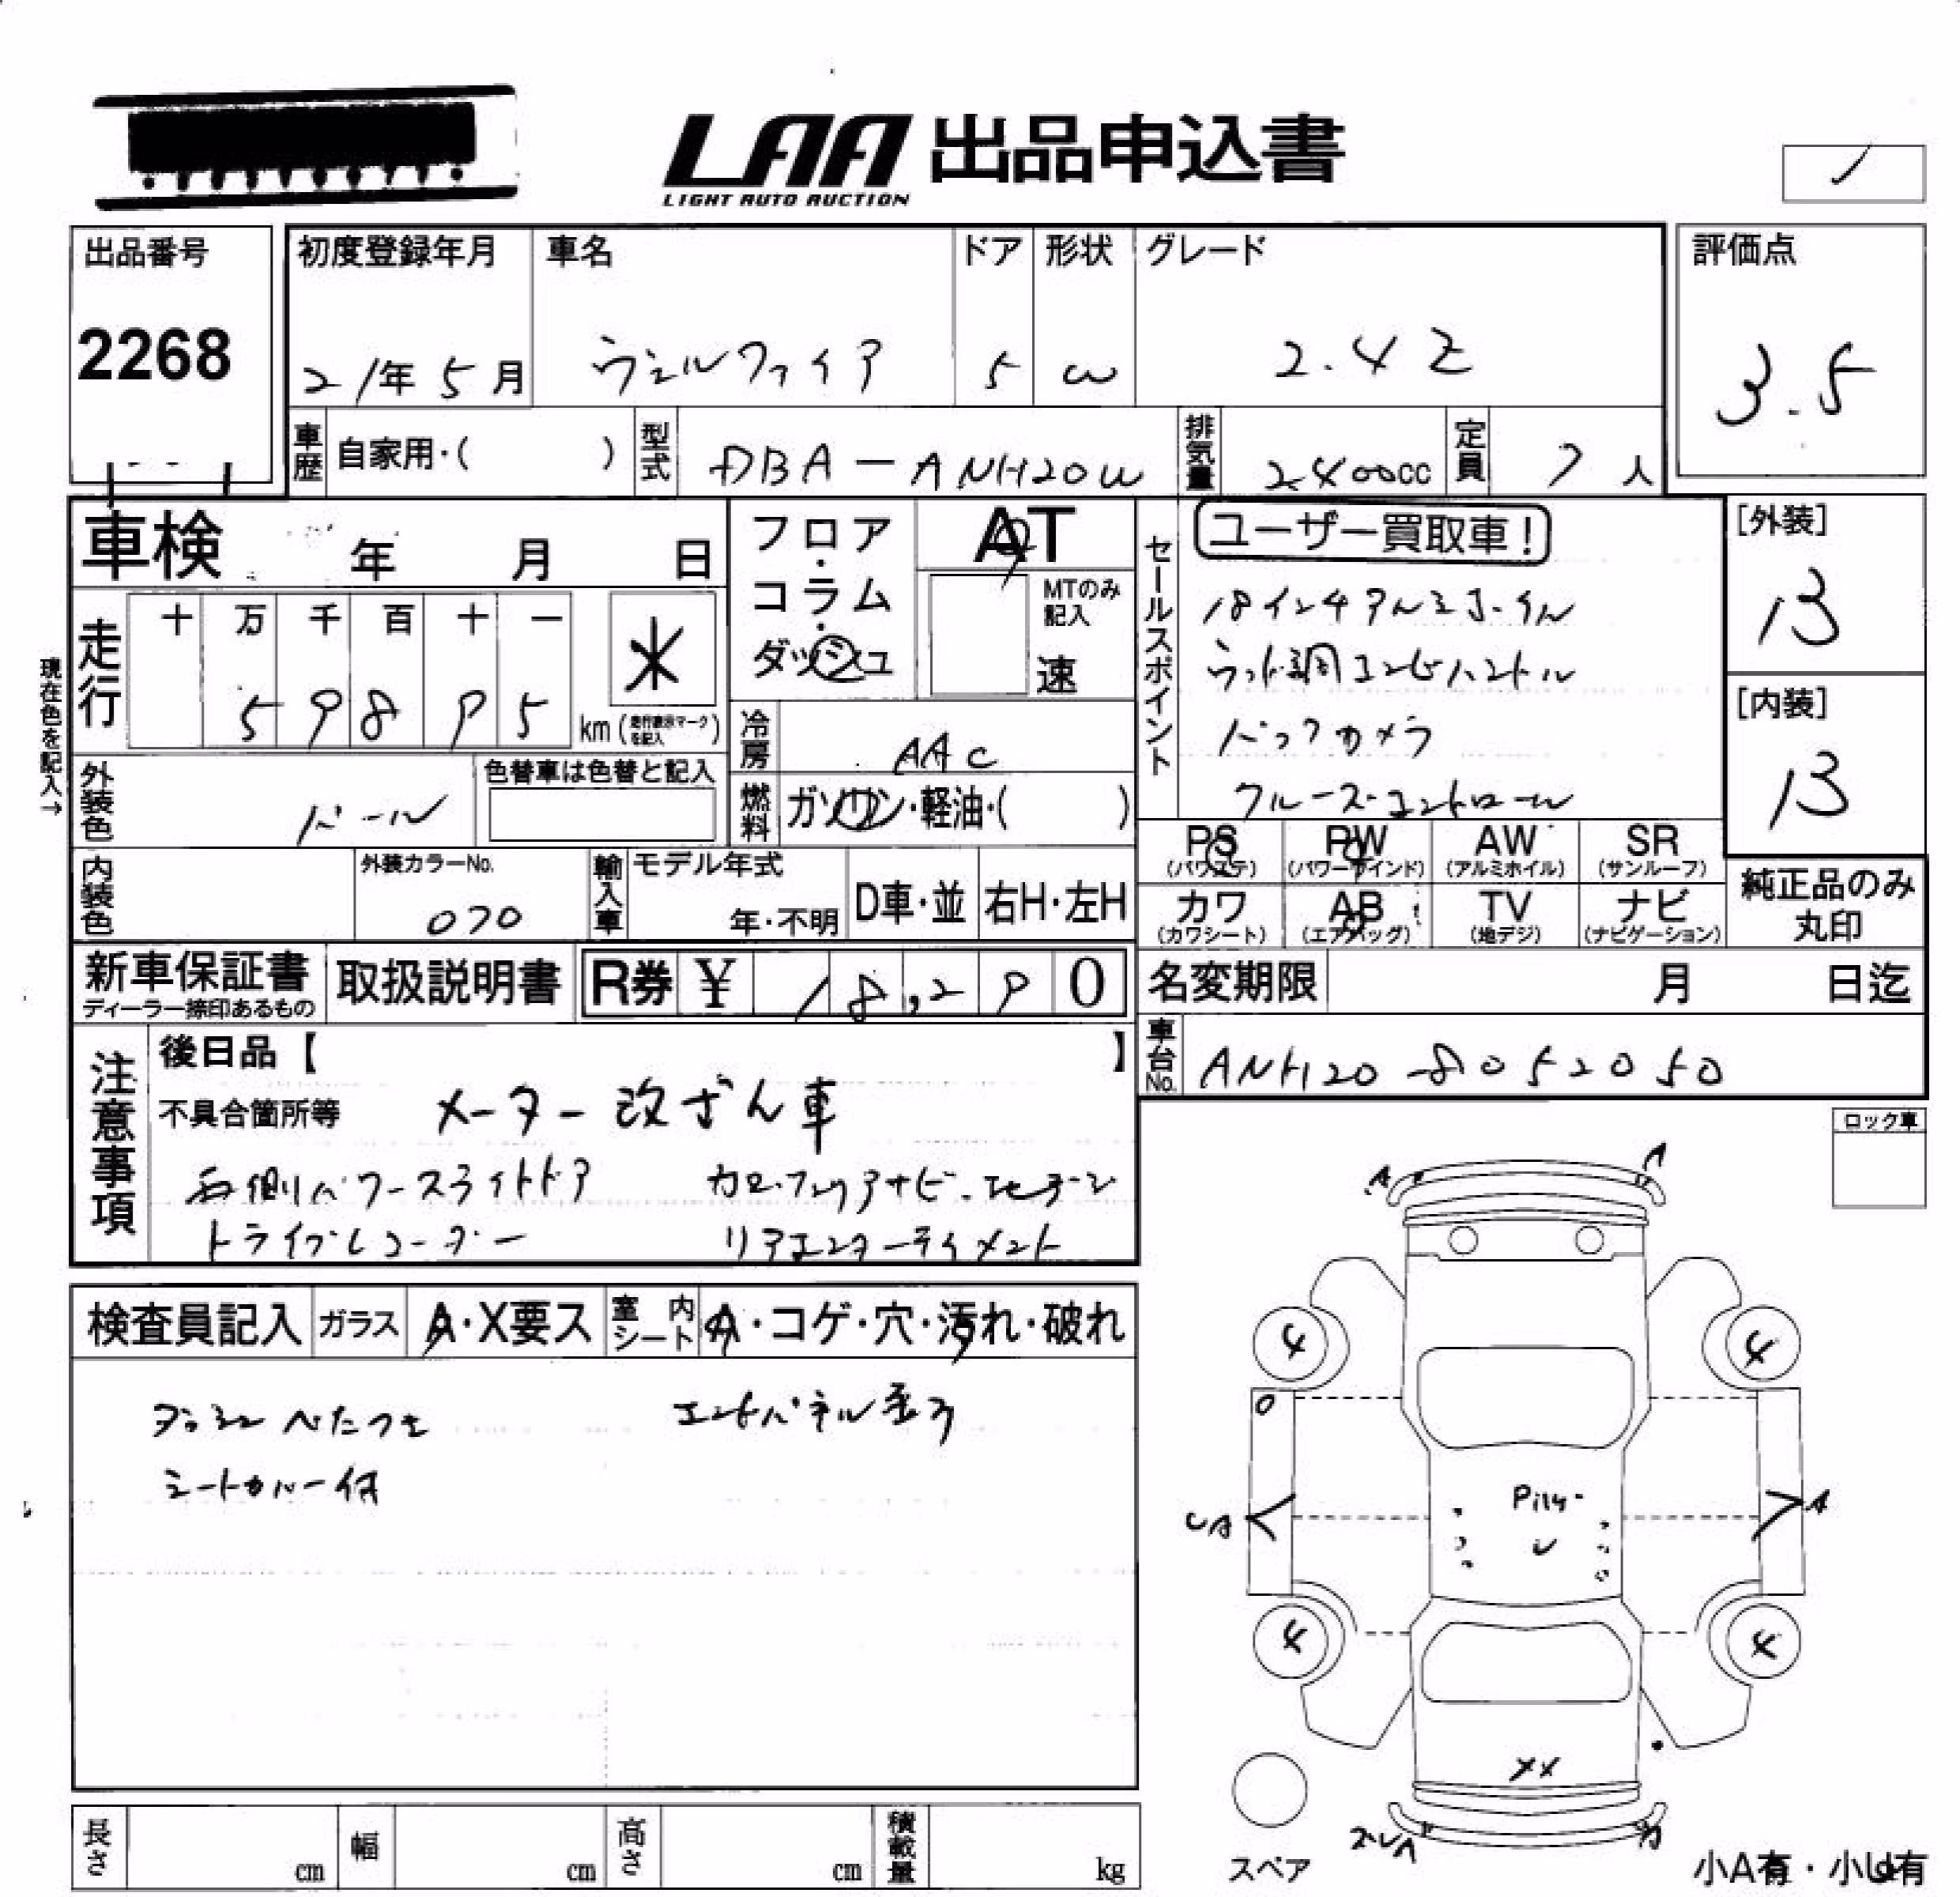 LAA 出品申込書
LIGHT AUTO AUCTION
出品番号
2268
初度登録年月 車名 ドア 形状 グレード 評価点
21年 5月 ヴェルファイア 5 W 2.4Z 3.5
車歴 自家用・( ) 型式 DBA-ANH20W 排気量 2400cc 定員 7人
車検 年 月 日
フロア・コラム・ダッシュ
AT
MTのみ記入
速
走行
十 万 千 百 十 一
5 9 8 9 5 km (走行表示マークを記入) *
現在色を記入→
外装色 パール
色替車は色替と記入
冷房 AAC
燃料 ガソリン・軽油・( )
セールスポイント
ユーザー買取車!
18インチアルミホイル
ウッド調コンビハンドル
バックカメラ
クルーズコントロール
[外装]
B
[内装]
B
内装色
外装カラーNo.
070
輸入車 モデル年式
年・不明
D車・並 右H・左H
PS (パワステ) PW (パワーウインド) AW (アルミホイル) SR (サンルーフ)
カワ (カワシート) AB (エアバッグ) TV (地デジ) ナビ (ナビゲーション)
純正品のみ丸印
新車保証書
ディーラー捺印あるもの
取扱説明書
R券 ¥ 18,290
名変期限 月 日迄
車台No. ANH20-8052050
注意事項
後日品【 】
不具合箇所等 メーター改ざん車
両側パワースライドドア
ドライブレコーダー
リアエンターテイメント
ロック車
検査員記入 ガラス A・X要ス 室内シート A・コゲ・穴・汚れ・破れ
ダッシュ べたつき エンドパネル歪み
シートカバー付
A A
4 4
UA A
4 4
XX
スペア
小A有・小U有
長さ cm 幅 cm 高さ cm 積載量 kg